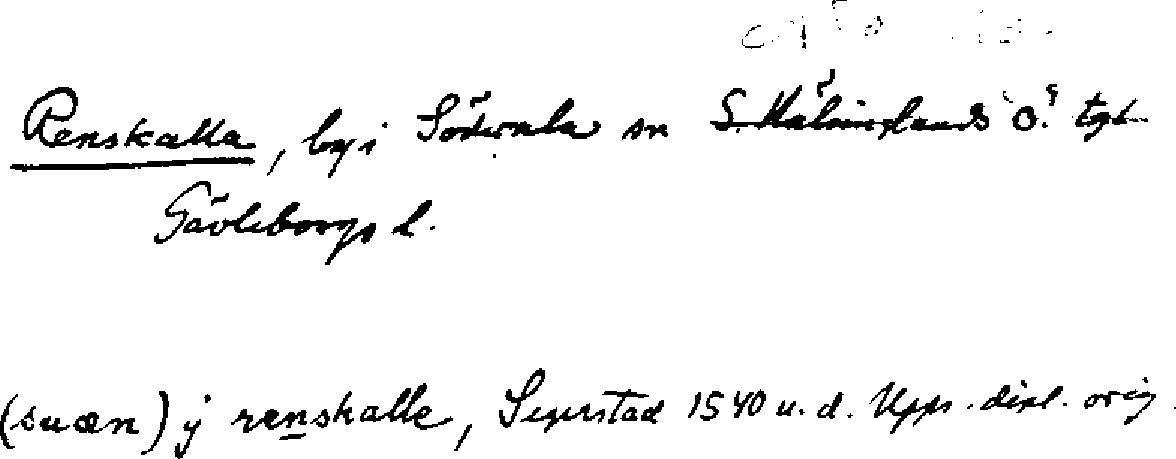 Renskalla, by i Söderala sn S. Hälsinglands ö. tgt
Gävleborgs l.
(suæn) ÿ renskalle, Segerstad 1540 u. d. Upps. dipl. orig.